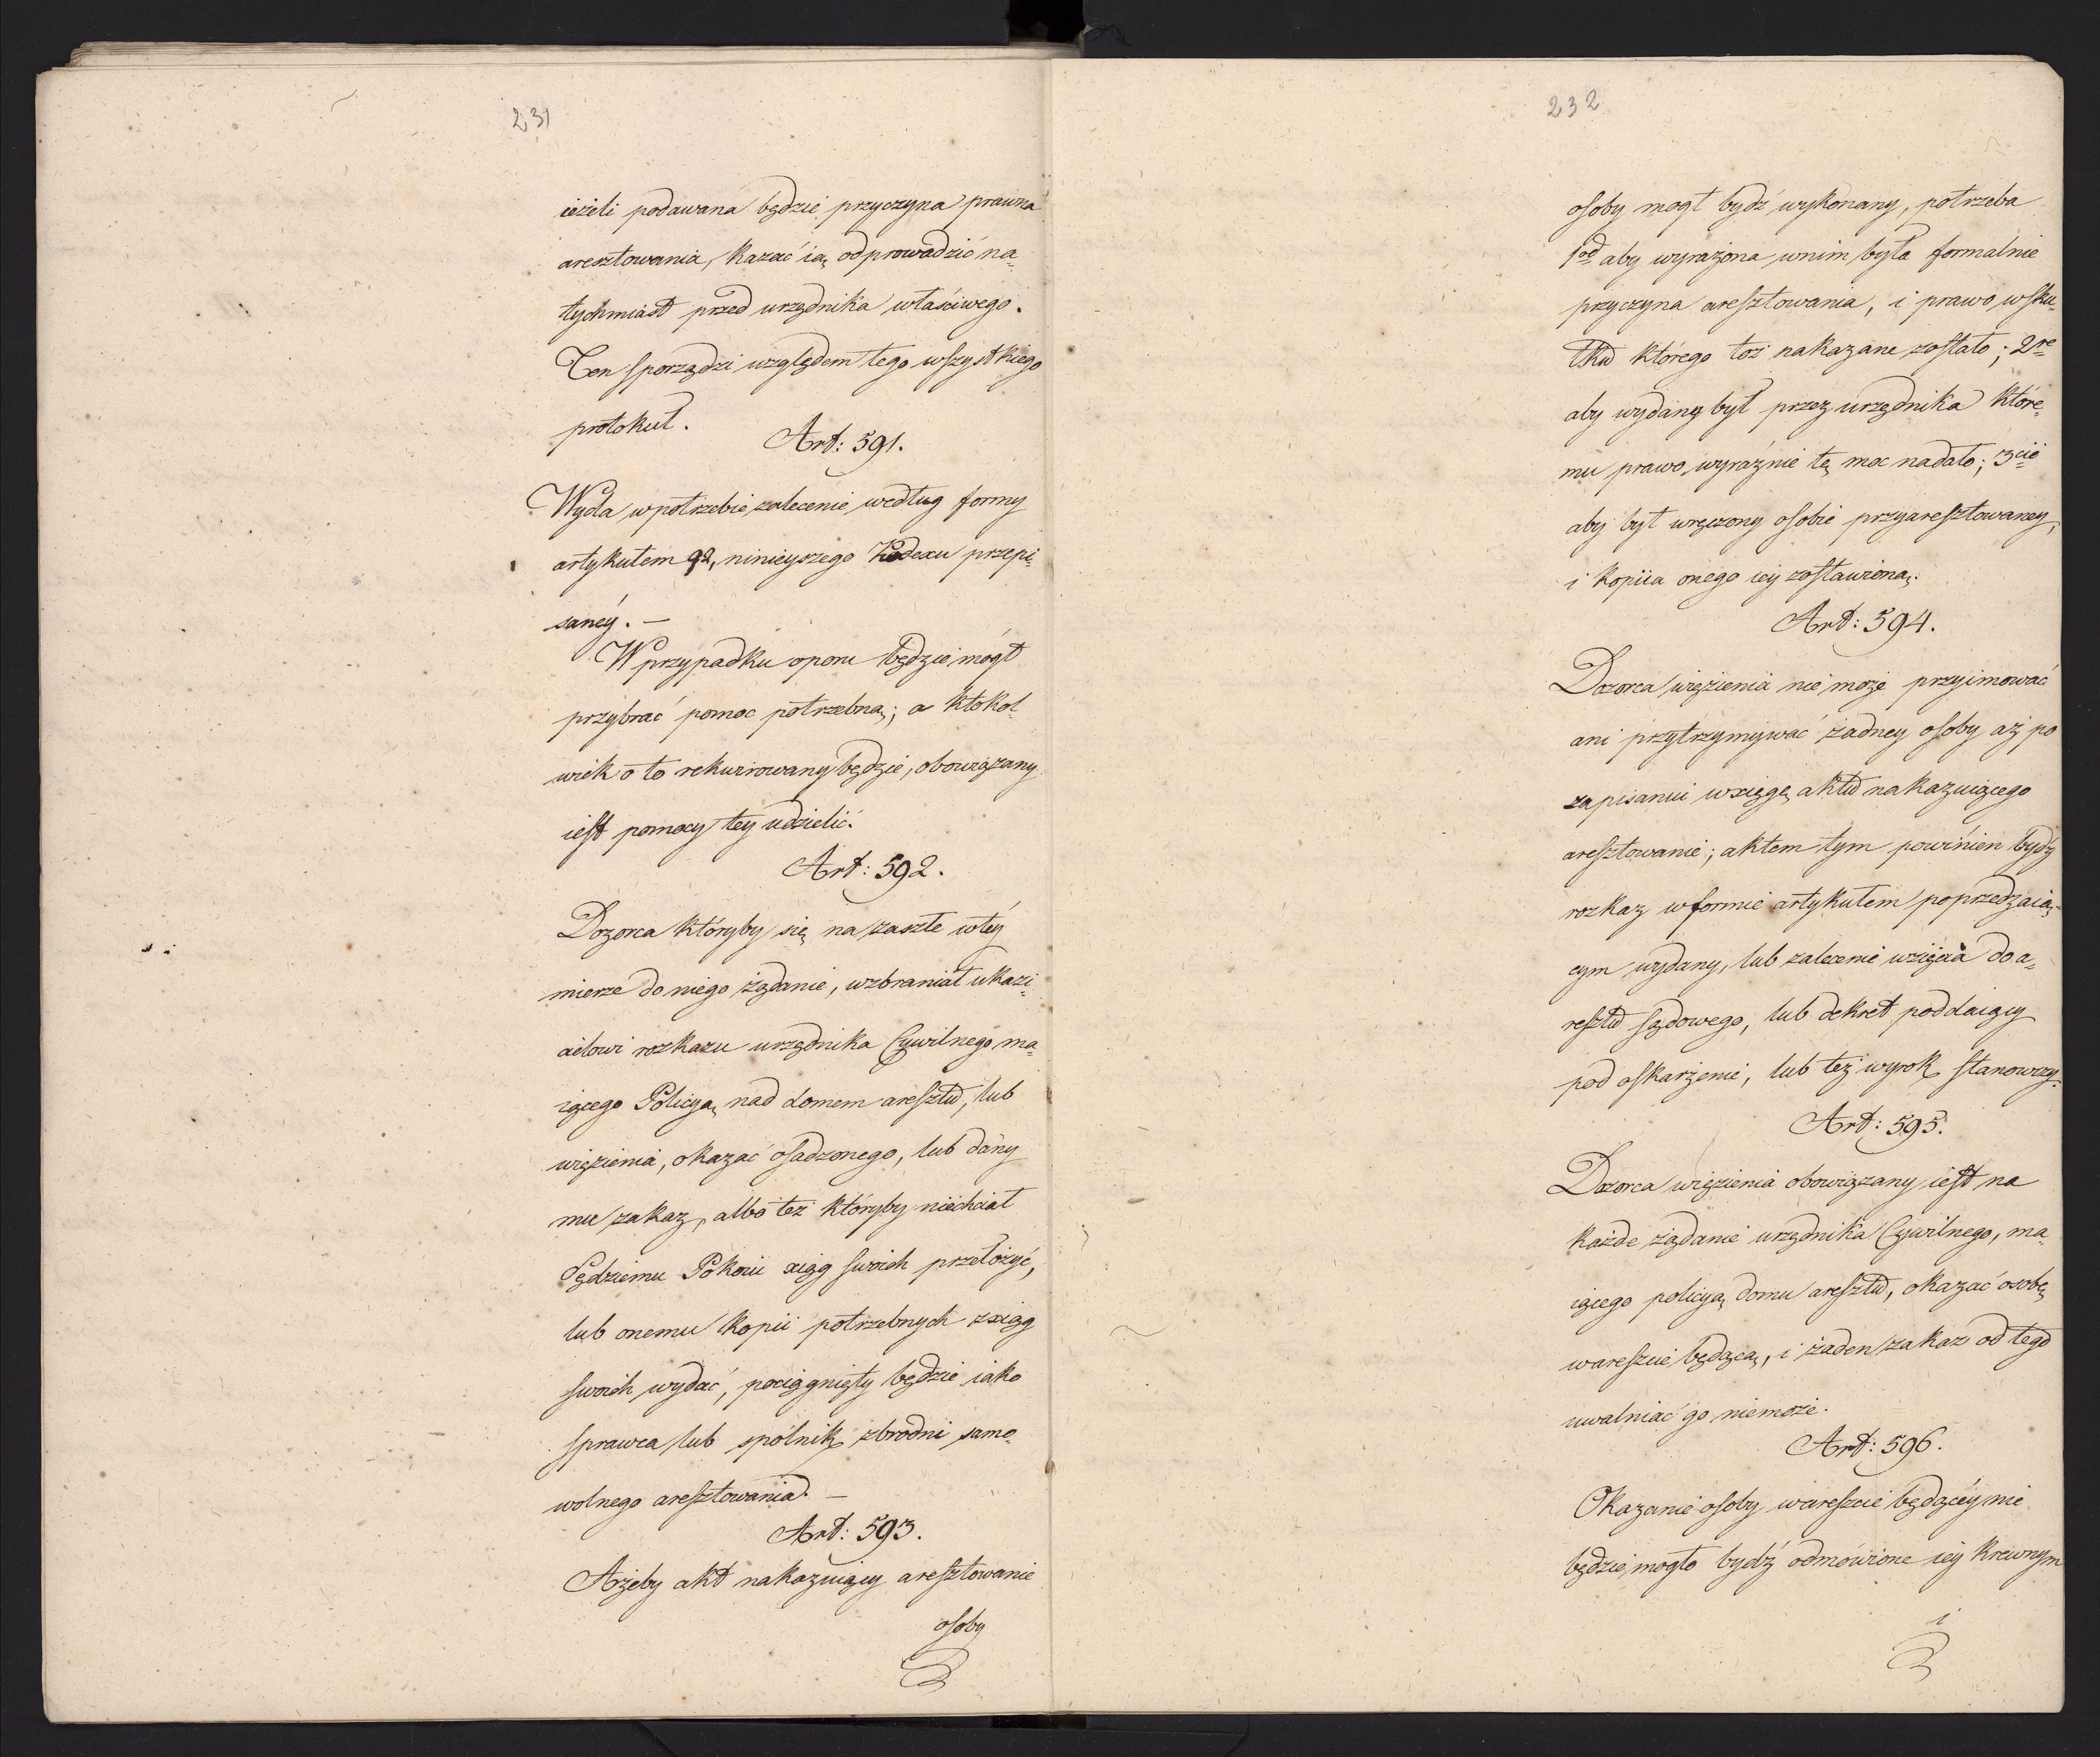 231
ieżeli podawana będzie przyczyna prawna
aresztowania, kazać ią odprowadzić na=
tychmiast przed urzędnika właściwego.
Ten sporządzi względem tego wszystkiego
protokuł.
Art: 591.
Wyda w potrzebie zalecenie według formy
artykułem 92, ninieyszego Kodexu przepi=
sanéy. —
W przypadku oporu będzie mógł
przybrać pomoc potrzebną; a ktokol=
wiek o to rekwirowany będzie, obowiązany
iest pomocy tey udzielić.
Art: 592.
Dozorca któryby się na zaszłe w téy
mierze do niego żądanie, wzbraniał ukazi=
cielowi rozkazu urzędnika Cywilnego ma=
iącego Policyą nad domem aresztu, lub
więzienia, okazać osadzonego, lub dany
mu zakaz, albo też któryby niechciał
Sędziemu Pokoiu xiąg swoich przełożyć,
lub onemu kopii potrzebnych z xiąg
swoich wydać, pociągnięty będzie iako
sprawca lub spólnik zbrodni samo=
wolnego aresztowania. —
Art: 593.
Ażeby akt nakazuiący aresztowanie
osoby
232
osoby mogł bydź wykonany, potrzeba
1od aby wyrażona w nim była formalnie
przyczyna aresztowania, i prawo w sku=
tku którego toż nakazane zostało; 2re
aby wydany był przez urzędnika które=
mu prawo wyraźnie tę moc nadało; 3cie
aby był wręczony osobie przyaresztowaney,
i kopiia onego iey zostawiona.
Art: 594.
Dozorca więzienia nie może przyimować
ani przytrzymywać żadney osoby aż po
zapisaniu w xięgę aktu nakazuiącego
aresztowanie; aktem tym powinien bydź
rozkaz w formie artykułem poprzedzaią=
cym wydany, lub zalecenie wzięcia do a=
resztu sądowego, lub dekret poddaiący
pod oskarżenie, lub też wyrok stanowczy.
Art: 595.
Dozorca więzienia obowiązany iest na
każde żądanie urzędnika Cywilnego, ma=
iącego policyą domu aresztu, okazać osobę
w areszcie będącą, i żaden zakaz od tego
uwalniać go niemoże.
Art: 596.
Okazanie osoby w areszcie będącéy nie
będzie mogło bydź odmówione iéy krewnym
i